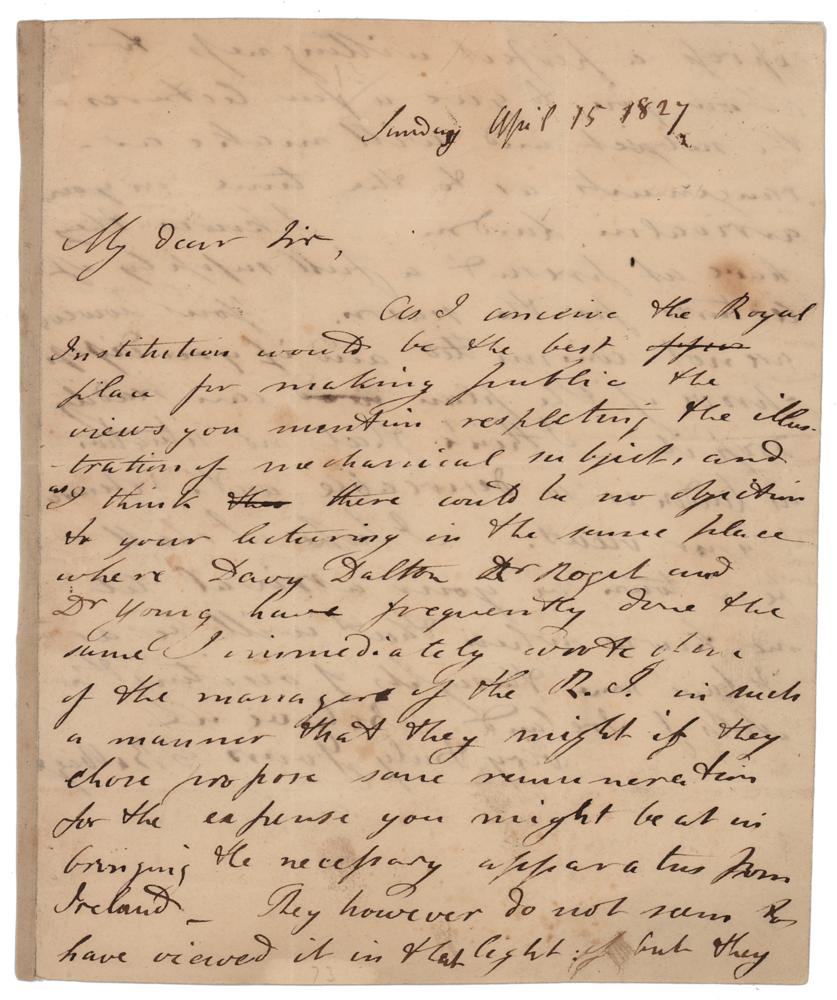 Sunday April 15 1827
My dear Sir,
As I conceive the Royal
Institution would be the best
place for making public the
views you mention respecting the illus-
tration of mechanical subjects, and
as I think there could be no objection
to your lecturing in the same place
where Davy Dalton Dr Roget and
Dr Young have frequently done the
same I immediately wrote to one
of the managers of the R. I. in such
a manner that they might if they
chose propose some remuneration
for the expense you might be at in
bringing the necessary apparatus from
Ireland _ They however do not seem to
have viewed it in that light : but they